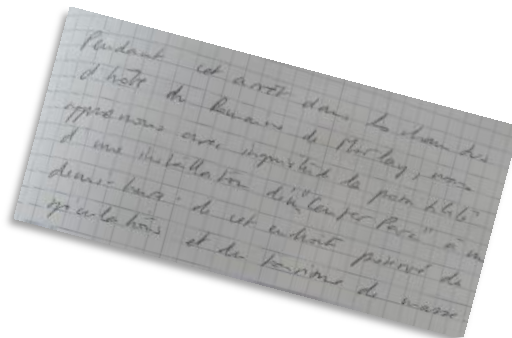 Pendant cet arrêt dans la chambre
d'hôte du Domaine de Morlay, nous
apprenons avec inquiétude la possibilité
d'une installation d'un "Center Parc" à une
demi-heure de cet endroit préservé de
spéculations et du tourisme de masse.